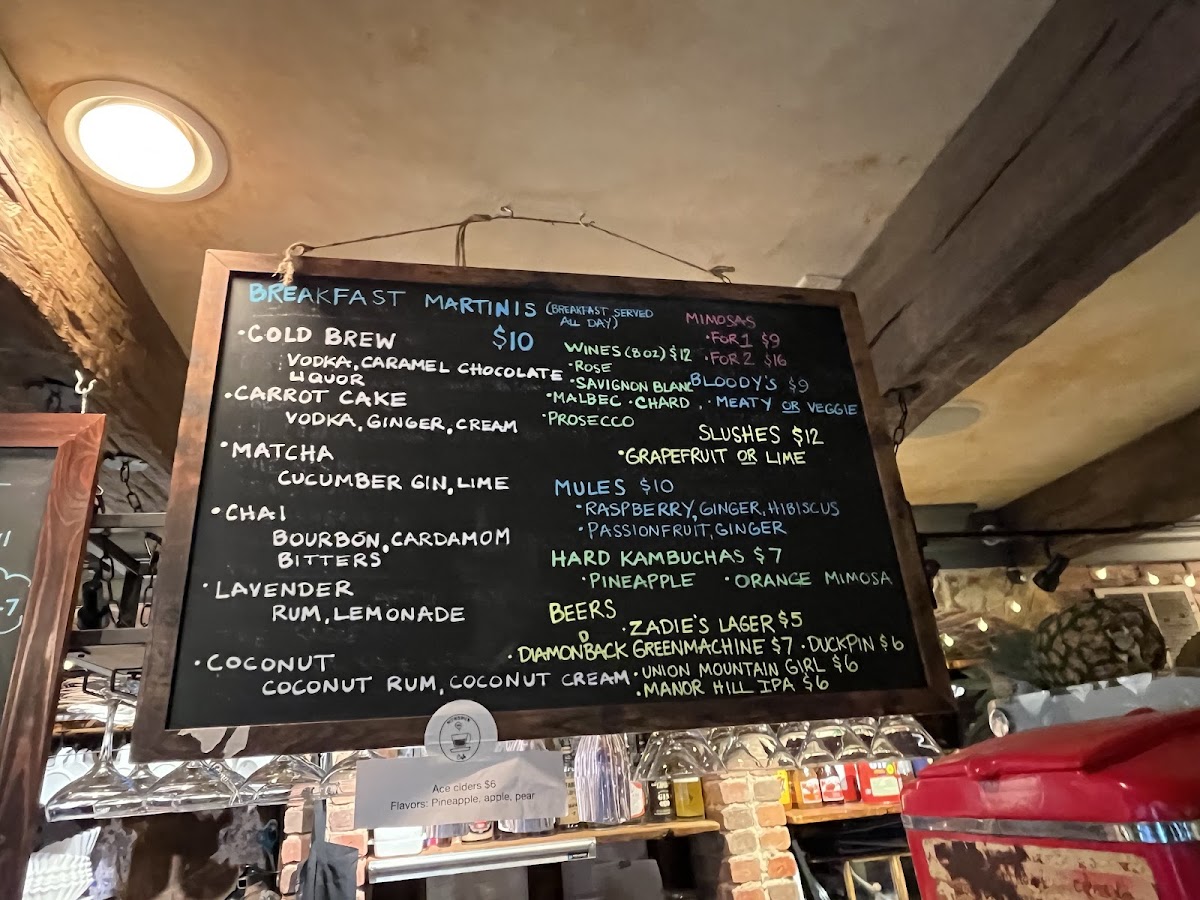 BREAKFAST MARTINIS (BREAKFAST SERVED
ALL DAY)
$10
• COLD BREW
VODKA, CARAMEL CHOCOLATE
LIQUOR
• CARROT CAKE
VODKA, GINGER, CREAM
• MATCHA
CUCUMBER GIN, LIME
• CHAI
BOURBON, CARDAMOM
BITTERS
• LAVENDER
RUM, LEMONADE
• COCONUT
COCONUT RUM, COCONUT CREAM
WINES (8 OZ) $12
• ROSE
• SAVIGNON BLANC
• MALBEC • CHARD
• PROSECCO
MIMOSAS
• FOR 1 $9
• FOR 2 $16
BLOODY'S $9
• MEATY OR VEGGIE
SLUSHES $12
• GRAPEFRUIT OR LIME
MULES $10
• RASPBERRY, GINGER, HIBISCUS
• PASSIONFRUIT, GINGER
HARD KAMBUCHAS $7
• PINEAPPLE • ORANGE MIMOSA
BEERS
• ZADIE'S LAGER $5
• DIAMONDBACK GREENMACHINE $7 • DUCKPIN $6
• UNION MOUNTAIN GIRL $6
• MANOR HILL IPA $6
Ace ciders $6
Flavors: Pineapple, apple, pear
-7